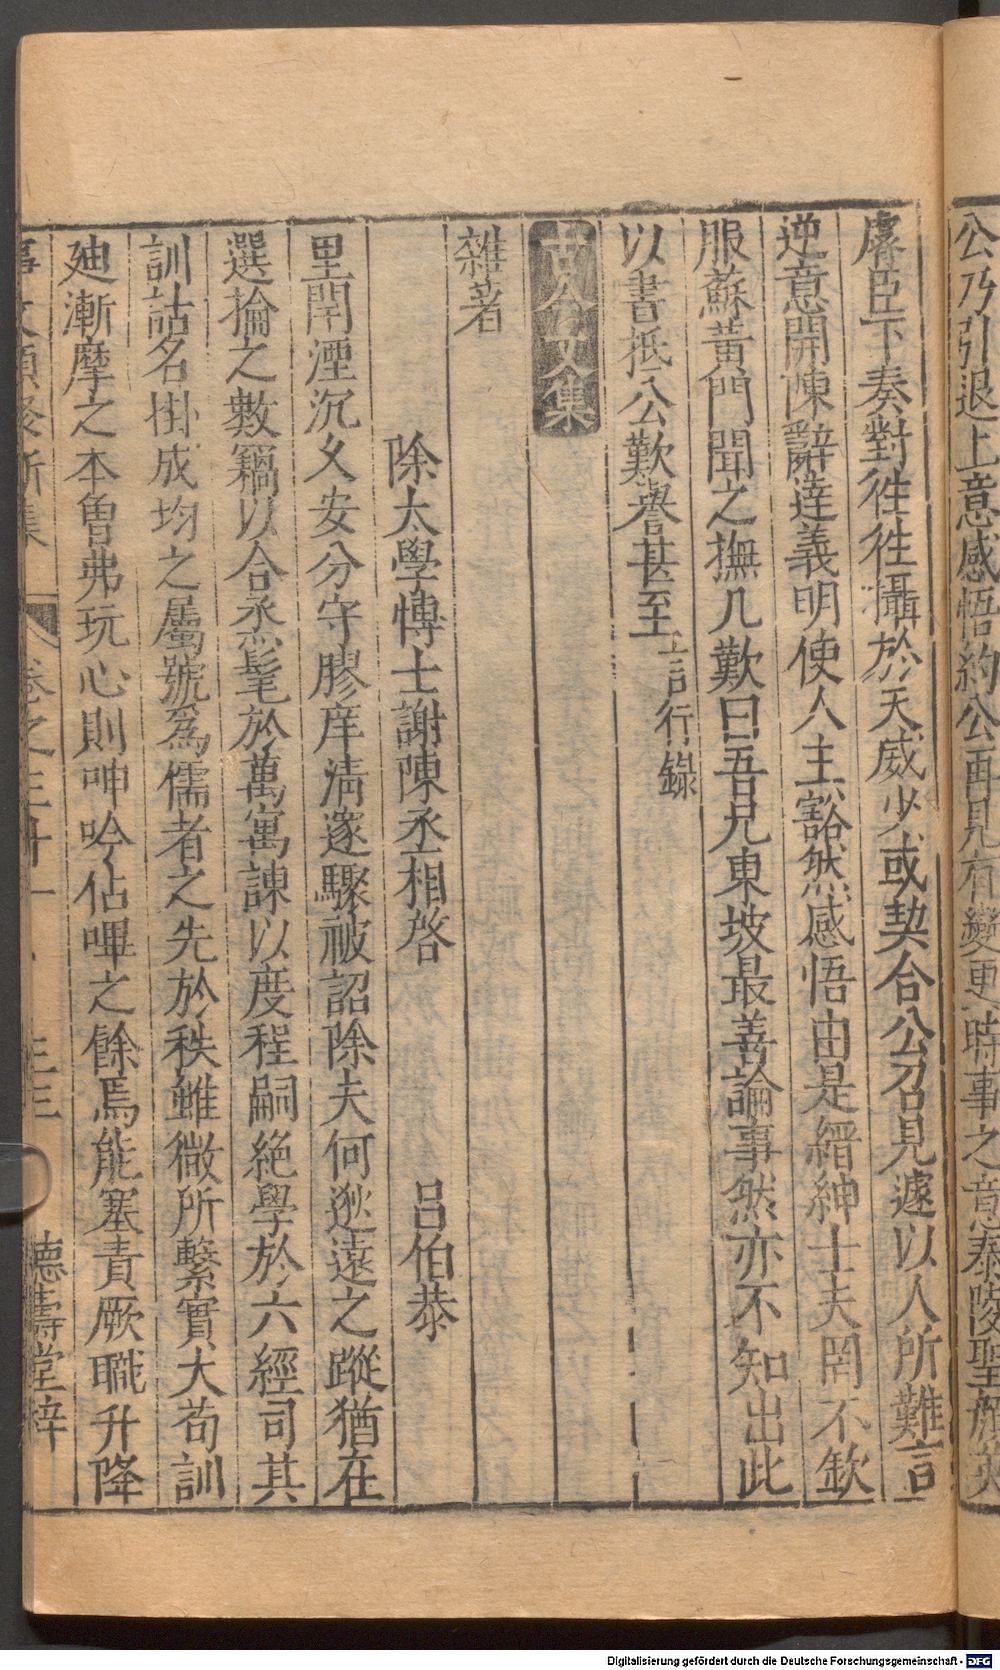 公乃引退上意感悟約公再見有變更時事之意泰陵聖
虜臣下奏對徃徃攝於天威少或契合公召見遽以人所難言
逆意開陳辭達義明使人主豁然感悟由是縉紳士夫罔不欽
服蘇黃門聞之撫几歎曰吾兄東坡最善論事然亦不知出此
以書抵公歎譽甚至言行錄
古今文集
雜著
除太學博士謝陳丞相啓 呂伯恭
里閈湮沉久安分守膠庠清邃驟被詔除夫何逖遠之蹤猶在
選掄之數竊以合烝髦於萬寓諫以度程嗣絶學於六經司其
訓詁名掛成均之屬號爲儒者之先於秩雖微所繫實大苟訓
廸漸摩之本魯弗玩心則呻吟佔嗶之餘焉能塞責厥職升降
事文類聚新集 卷之三十一 三三 德壽堂梓
Digitalisierung gefördert durch die Deutsche Forschungsgemeinschaft - DFG